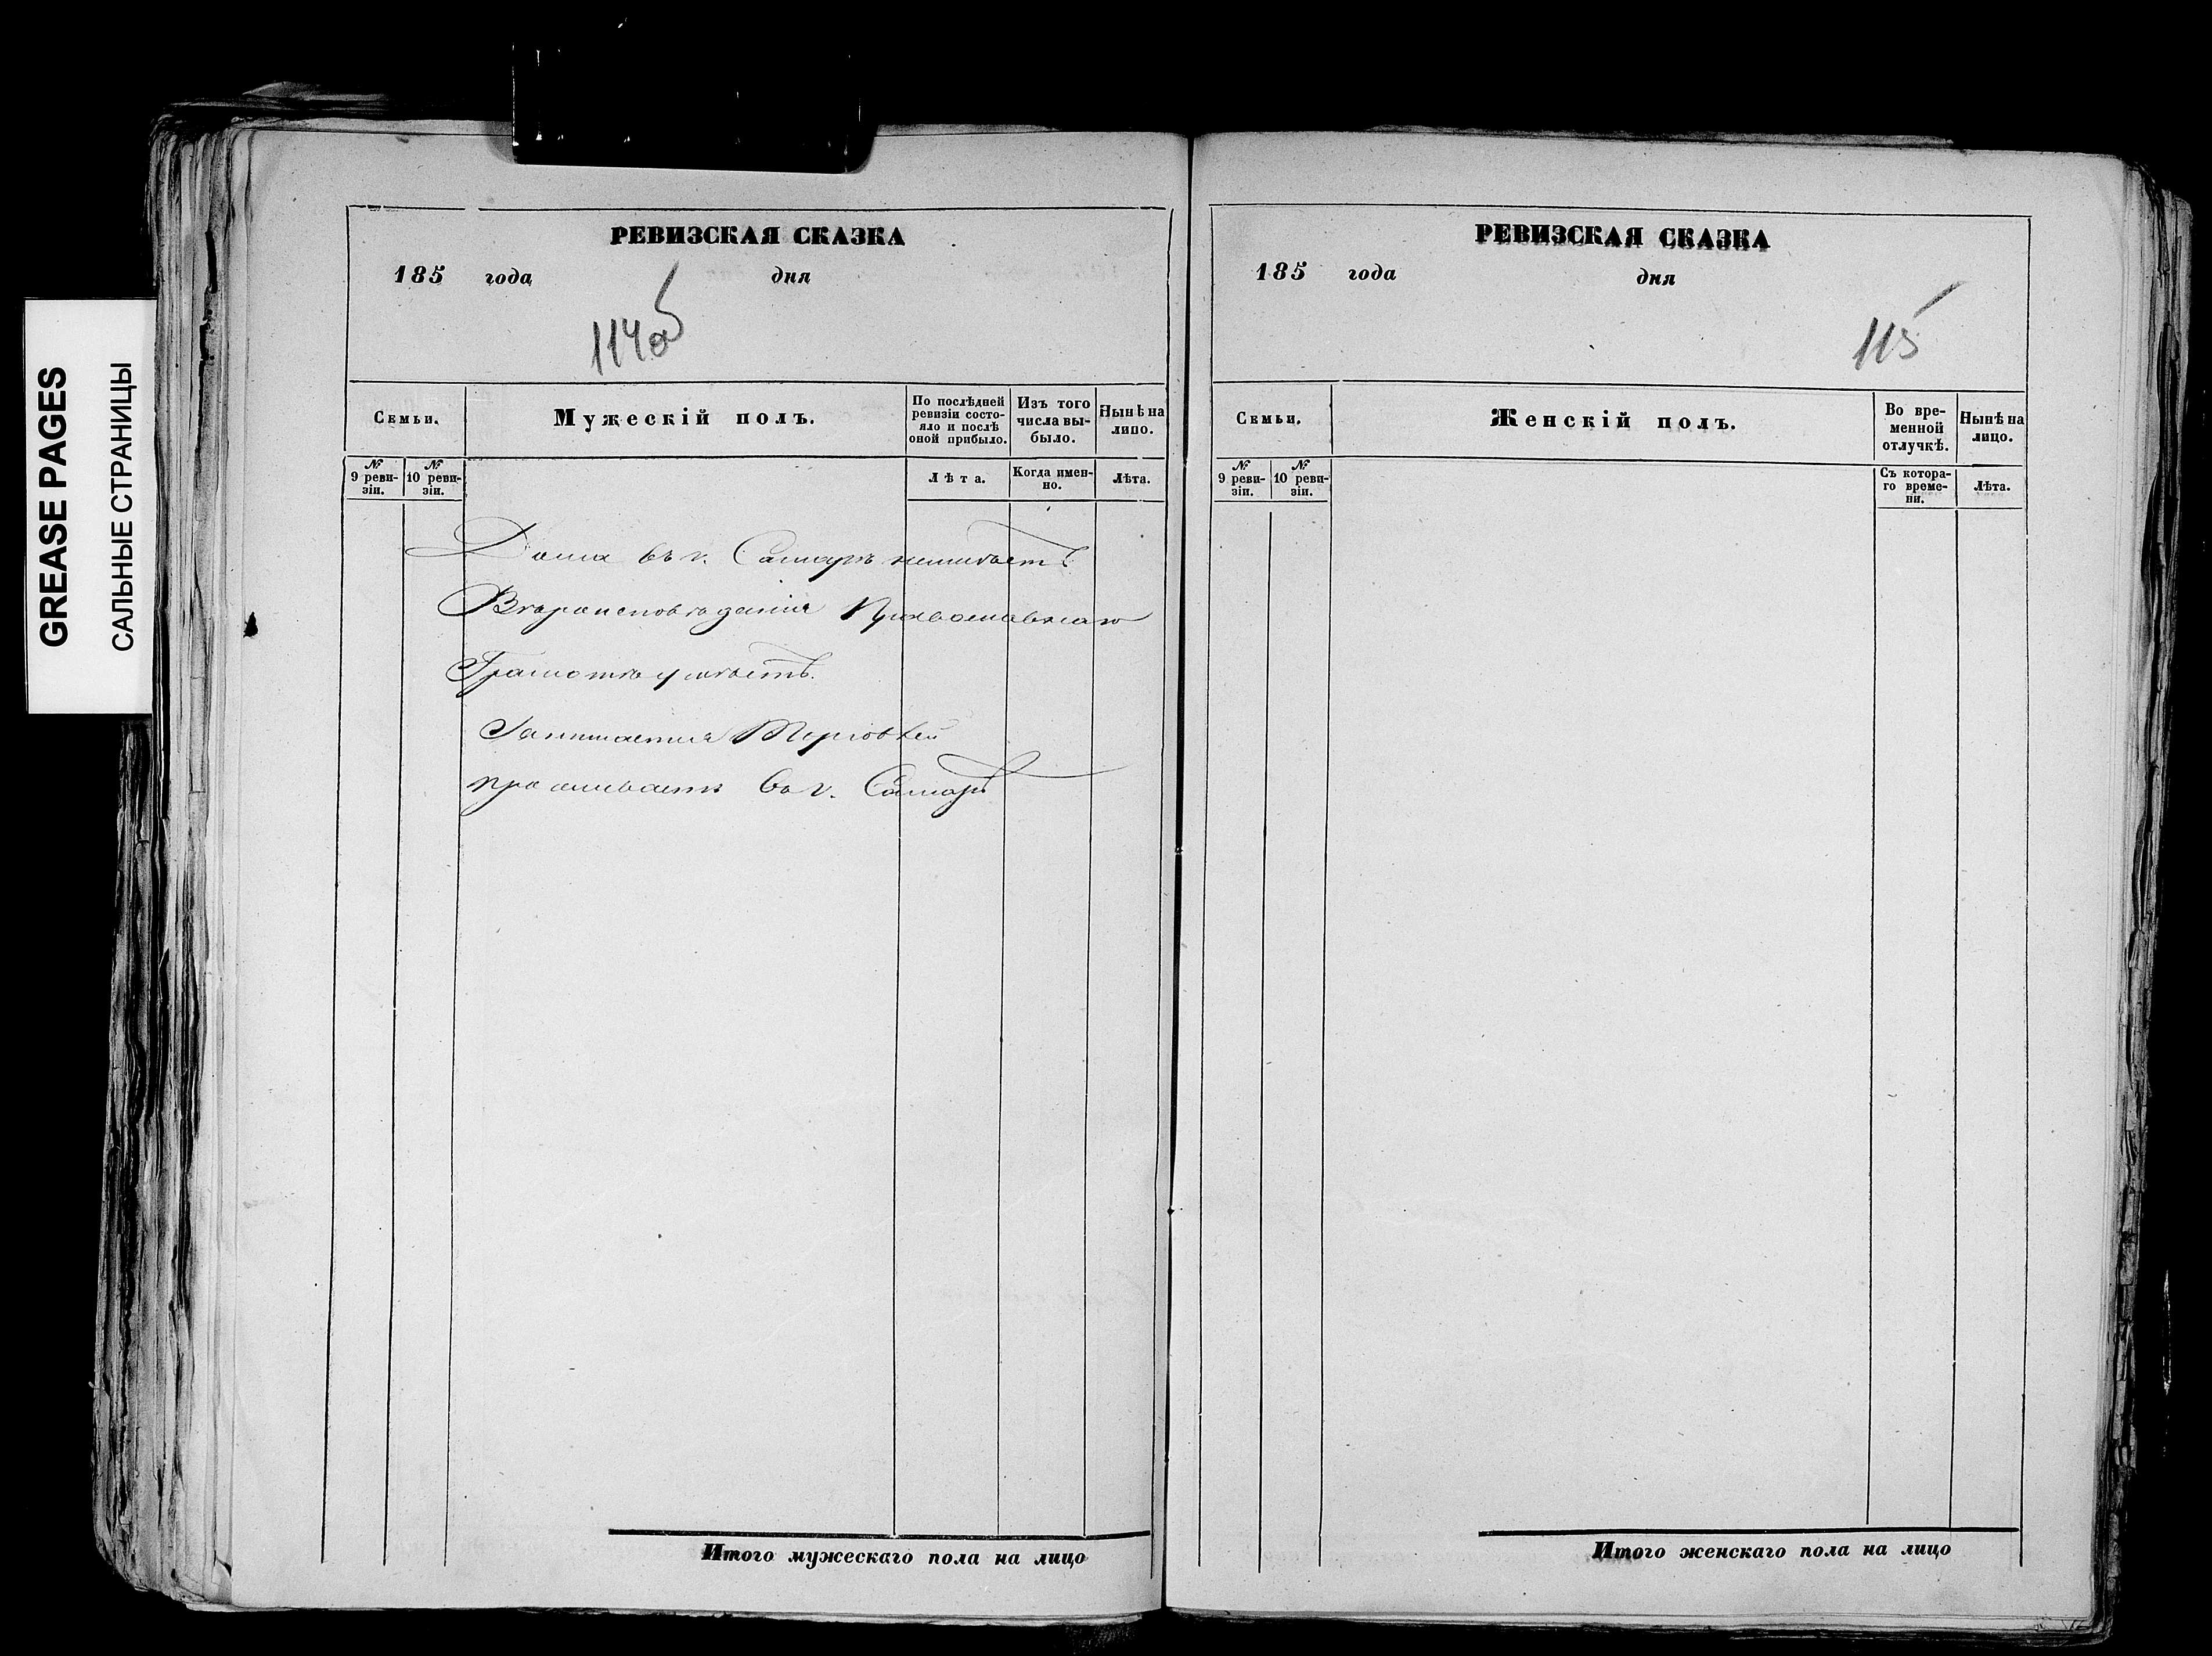 GREASE PAGES
САЛЬНЫЕ СТРАНИЦЫ
РЕВИЗСКАЯ СКАЗКА
185 года дня
114об
Семьи.
Мужескій полъ.
По послѣдней ревизіи состо-
яло и послѣ
оной прибыло.
Изъ того
числа вы-
было.
Нынѣ на
лицо.
№
9 реви-
зіи.
№
10 реви-
зіи.
Лѣта.
Когда имен-
но.
Лѣта.
Дома въ г. Самарѣ неимѣетъ
Вѣроисповѣданія Православнаго
Грамотѣ умѣетъ.
Занимается Торговлей
проживаетъ въ г. Самарѣ
Итого мужескаго пола на лицо
РЕВИЗСКАЯ СКАЗКА
185 года дня
115
Семьи.
Женскій полъ.
Во вре-
менной
отлучкѣ.
Нынѣ на
лицо.
№
9 реви-
зіи.
№
10 реви-
зіи.
Съ котора-
го време-
ни.
Лѣта.
Итого женскаго пола на лицо